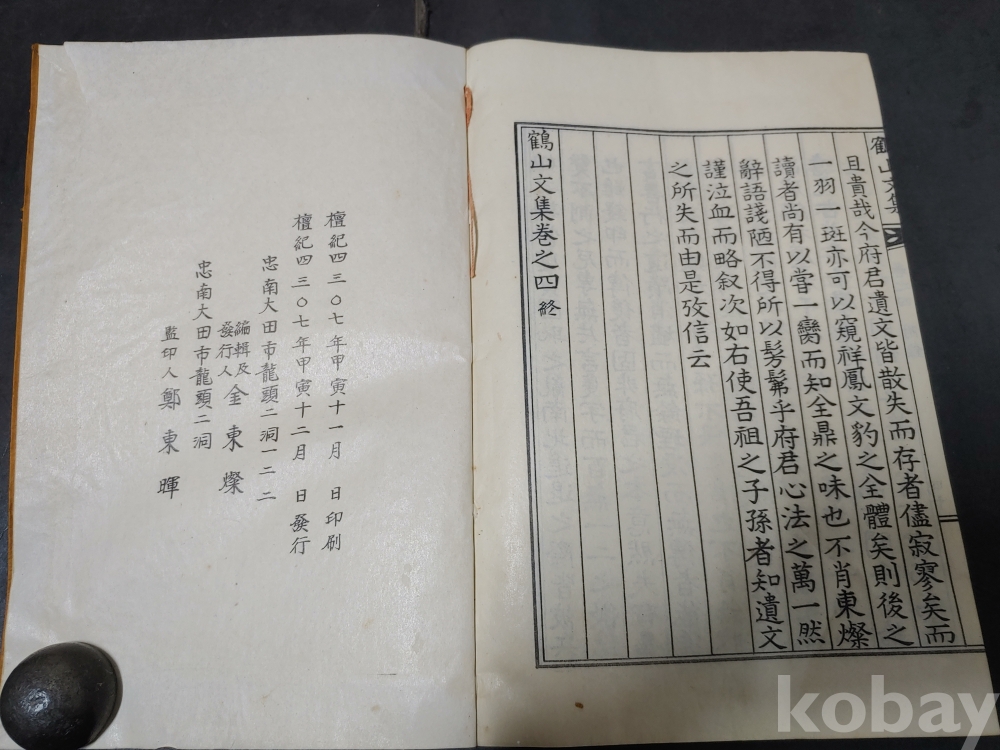 鶴山文集
且貴哉今府君遺文皆散失而存者儘寂寥矣而
一羽一斑亦可以窺祥鳳文豹之全體矣則後之
讀者尚有以嘗一臠而知全鼎之味也不肖東燦
辭語諓陋不得所以髣髴乎府君心法之萬一然
謹泣血而略叙次如右使吾祖之子孫者知遺文
之所失而由是攷信云
鶴山文集卷之四 終
檀紀四三〇七年甲寅十一月 日印刷
檀紀四三〇七年甲寅十二月 日發行
忠南大田市龍頭二洞一二二
編輯及
發行人 金東燦
忠南大田市龍頭二洞
監印人 鄭東暉
kobay